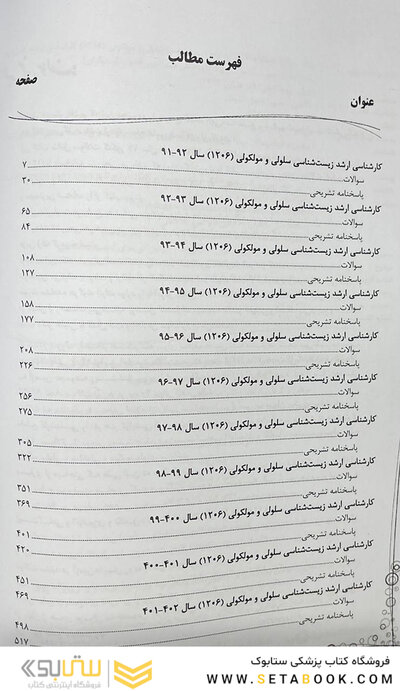 فهرست مطالب
صفحه
عنوان
کارشناسی ارشد زیست‌شناسی سلولی و مولکولی (۱۲۰۶) سال ۹۲-۹۱
سوالات ۷
پاسخنامه تشریحی ۳۰
کارشناسی ارشد زیست‌شناسی سلولی و مولکولی (۱۲۰۶) سال ۹۳-۹۲
سوالات ۶۵
پاسخنامه تشریحی ۸۴
کارشناسی ارشد زیست‌شناسی سلولی و مولکولی (۱۲۰۶) سال ۹۴-۹۳
سوالات ۱۰۸
پاسخنامه تشریحی ۱۲۷
کارشناسی ارشد زیست‌شناسی سلولی و مولکولی (۱۲۰۶) سال ۹۵-۹۴
سوالات ۱۵۸
پاسخنامه تشریحی ۱۷۷
کارشناسی ارشد زیست‌شناسی سلولی و مولکولی (۱۲۰۶) سال ۹۶-۹۵
سوالات ۲۰۸
پاسخنامه تشریحی ۲۲۶
کارشناسی ارشد زیست‌شناسی سلولی و مولکولی (۱۲۰۶) سال ۹۷-۹۶
سوالات ۲۵۶
پاسخنامه تشریحی ۲۷۵
کارشناسی ارشد زیست‌شناسی سلولی و مولکولی (۱۲۰۶) سال ۹۸-۹۷
سوالات ۳۰۵
پاسخنامه تشریحی ۳۲۲
کارشناسی ارشد زیست‌شناسی سلولی و مولکولی (۱۲۰۶) سال ۹۹-۹۸
سوالات ۳۵۱
پاسخنامه تشریحی ۳۶۹
کارشناسی ارشد زیست‌شناسی سلولی و مولکولی (۱۲۰۶) سال ۴۰۰-۹۹
سوالات ۴۰۱
پاسخنامه تشریحی ۴۲۰
کارشناسی ارشد زیست‌شناسی سلولی و مولکولی (۱۲۰۶) سال ۴۰۱-۴۰۰
سوالات ۴۵۱
پاسخنامه تشریحی ۴۶۹
کارشناسی ارشد زیست‌شناسی سلولی و مولکولی (۱۲۰۶) سال ۴۰۲-۴۰۱
سوالات ۴۹۸
پاسخنامه تشریحی ۵۱۷
فروشگاه کتاب پزشکی ستابوک
WWW.SETABOOK.COM
ستابوک
فروشگاه اینترنتی کتاب